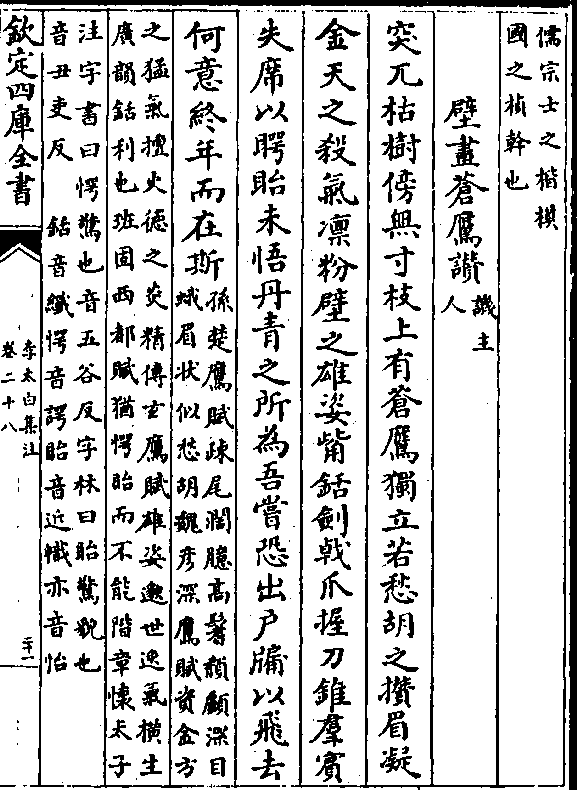 儒宗士之楷模
國之楨幹也
壁畫蒼鷹讚
譏主
人
突兀枯樹傍無寸枝上有蒼鷹獨立若愁胡之攢眉凝
金天之殺氣凛粉壁之雄姿觜銛劍戟爪握刀錐羣賓
失席以腭眙未悟丹青之所為吾嘗恐出户牖以飛去
何意終年而在斯
孫楚鷹賦疎尾濶臆高鬐頽顧深目
蛾眉状似愁胡魏彦深鷹賦資金方
之猛氣擅火德之炎精傅玄鷹賦雄姿邈世逸氣横生
廣韻銛利也班固西都賦猶愕眙而不能階章懷太子
注字書曰愕驚也音五谷反字林曰眙驚貌也
音丑吏反 銛音纎愕音諤眙音近幟亦音怡
欽定四庫全書
李太白集注
卷二十八
二十一